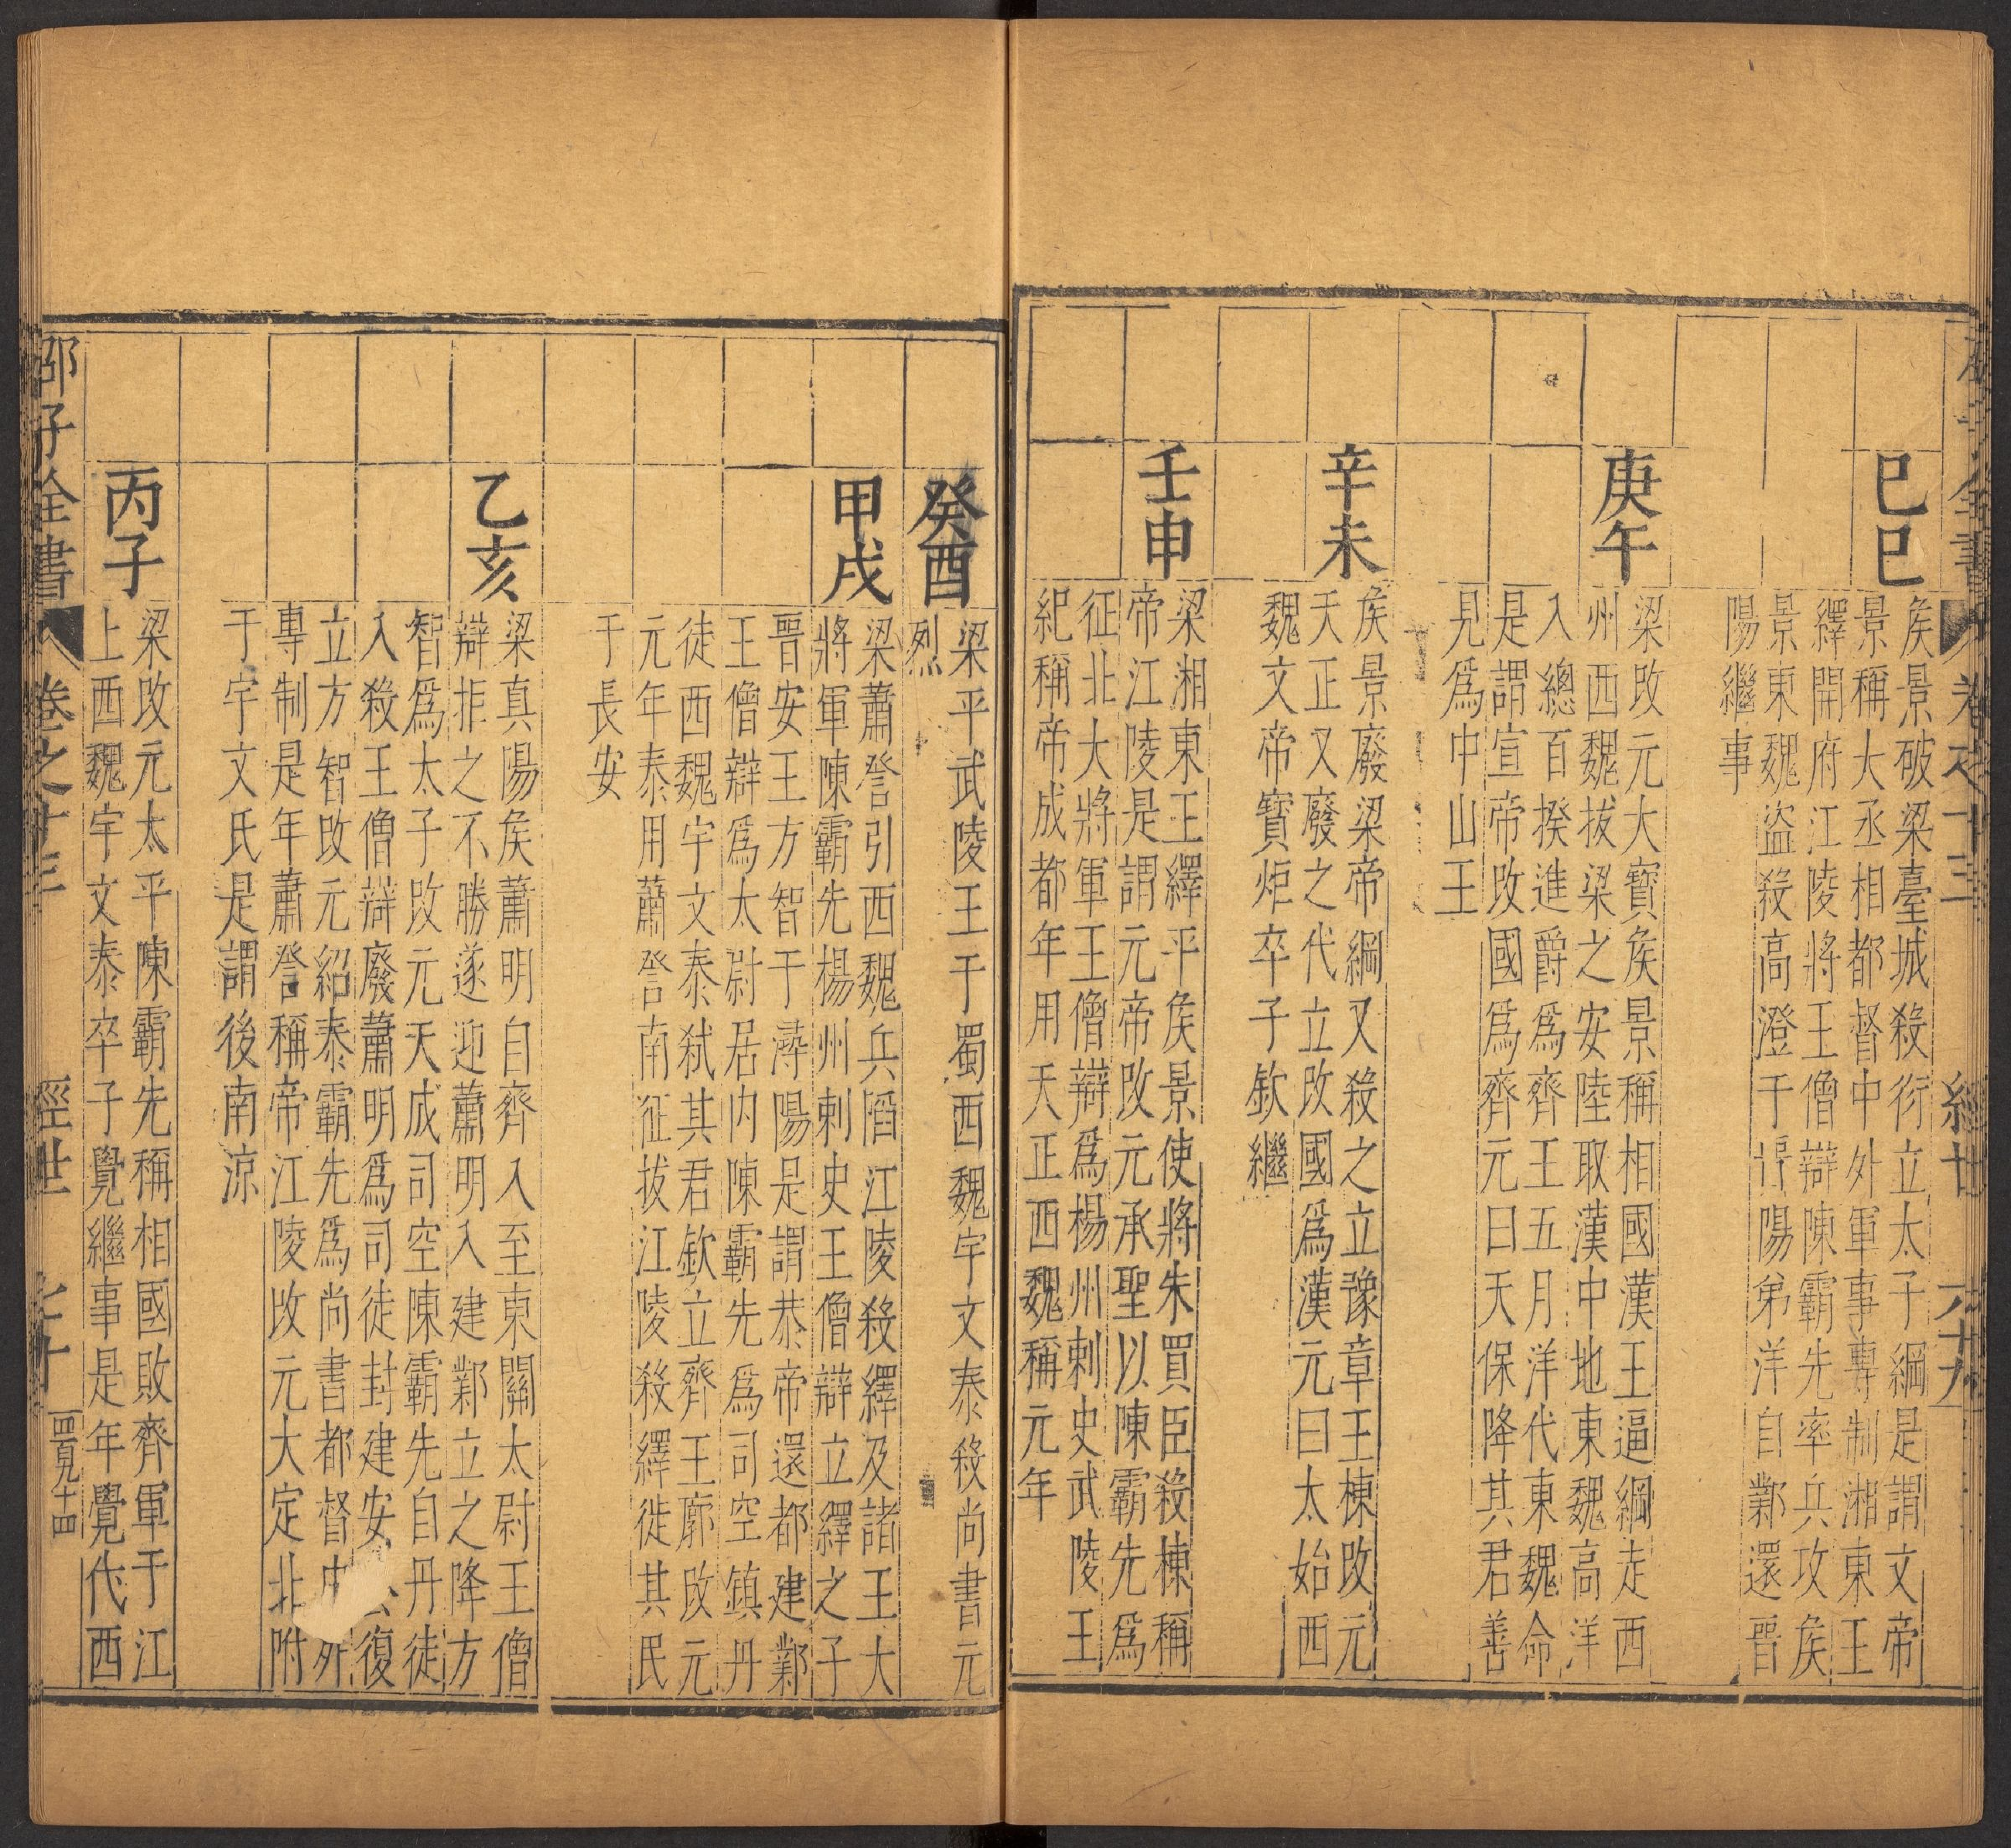 全書 卷之十三 經世 六十九
己巳
侯景破梁臺城殺衍立太子綱是謂文帝
景稱大丞相都督中外軍事專制湘東王
繹開府江陵將王僧辯陳霸先率兵攻侯
景東魏盜殺高澄于陽弟洋自鄴還晉
陽繼事
庚午
梁改元大寶侯景稱相國漢王逼綱走西
州西魏拔梁之安陸取漢中地東魏高洋
入總百揆進爵為齊王五月洋代東魏命
是謂宣帝改國為齊元曰天保降其君善
見為中山王
辛未
侯景廢梁帝綱又殺之立豫章王棟改元
天正又廢之代立改國為漢元曰太始西
魏文帝寶炬卒子欽繼
壬申
梁湘東王繹平侯景使將朱買臣殺棟稱
帝江陵是謂元帝改元承聖以陳霸先為
征北大將軍王僧辯為楊州刺史武陵王
紀稱帝成都年用天正西魏稱元年
癸酉
梁平武陵王于蜀西魏宇文泰殺尚書元
烈
甲戌
梁蕭詧引西魏兵陷江陵殺繹及諸王大
將軍陳霸先楊州刺史王僧辯立繹之子
晉安王方智于潯陽是謂恭帝還都建鄴
王僧辯為太尉居內陳霸先為司空鎮丹
徒西魏宇文泰弒其君欽立齊王廓改元
元年泰用蕭詧南征拔江陵殺繹徙其民
于長安
乙亥
梁真陽侯蕭明自齊入至東關太尉王僧
辯拒之不勝遂迎蕭明入建鄴立之降方
智為太子改元天成司空陳霸先自丹徒
入殺王僧辯廢蕭明為司徒封建安公復
立方智改元紹泰霸先為尚書都督
專制是年蕭詧稱帝江陵改元大定北附
于宇文氏是謂後南涼
丙子
梁改元太平陳霸先稱相國敗齊軍于江
上西魏宇文泰卒子覺繼事是年覺代西
邵子全書 卷之十三 經世 七十 四百九十四